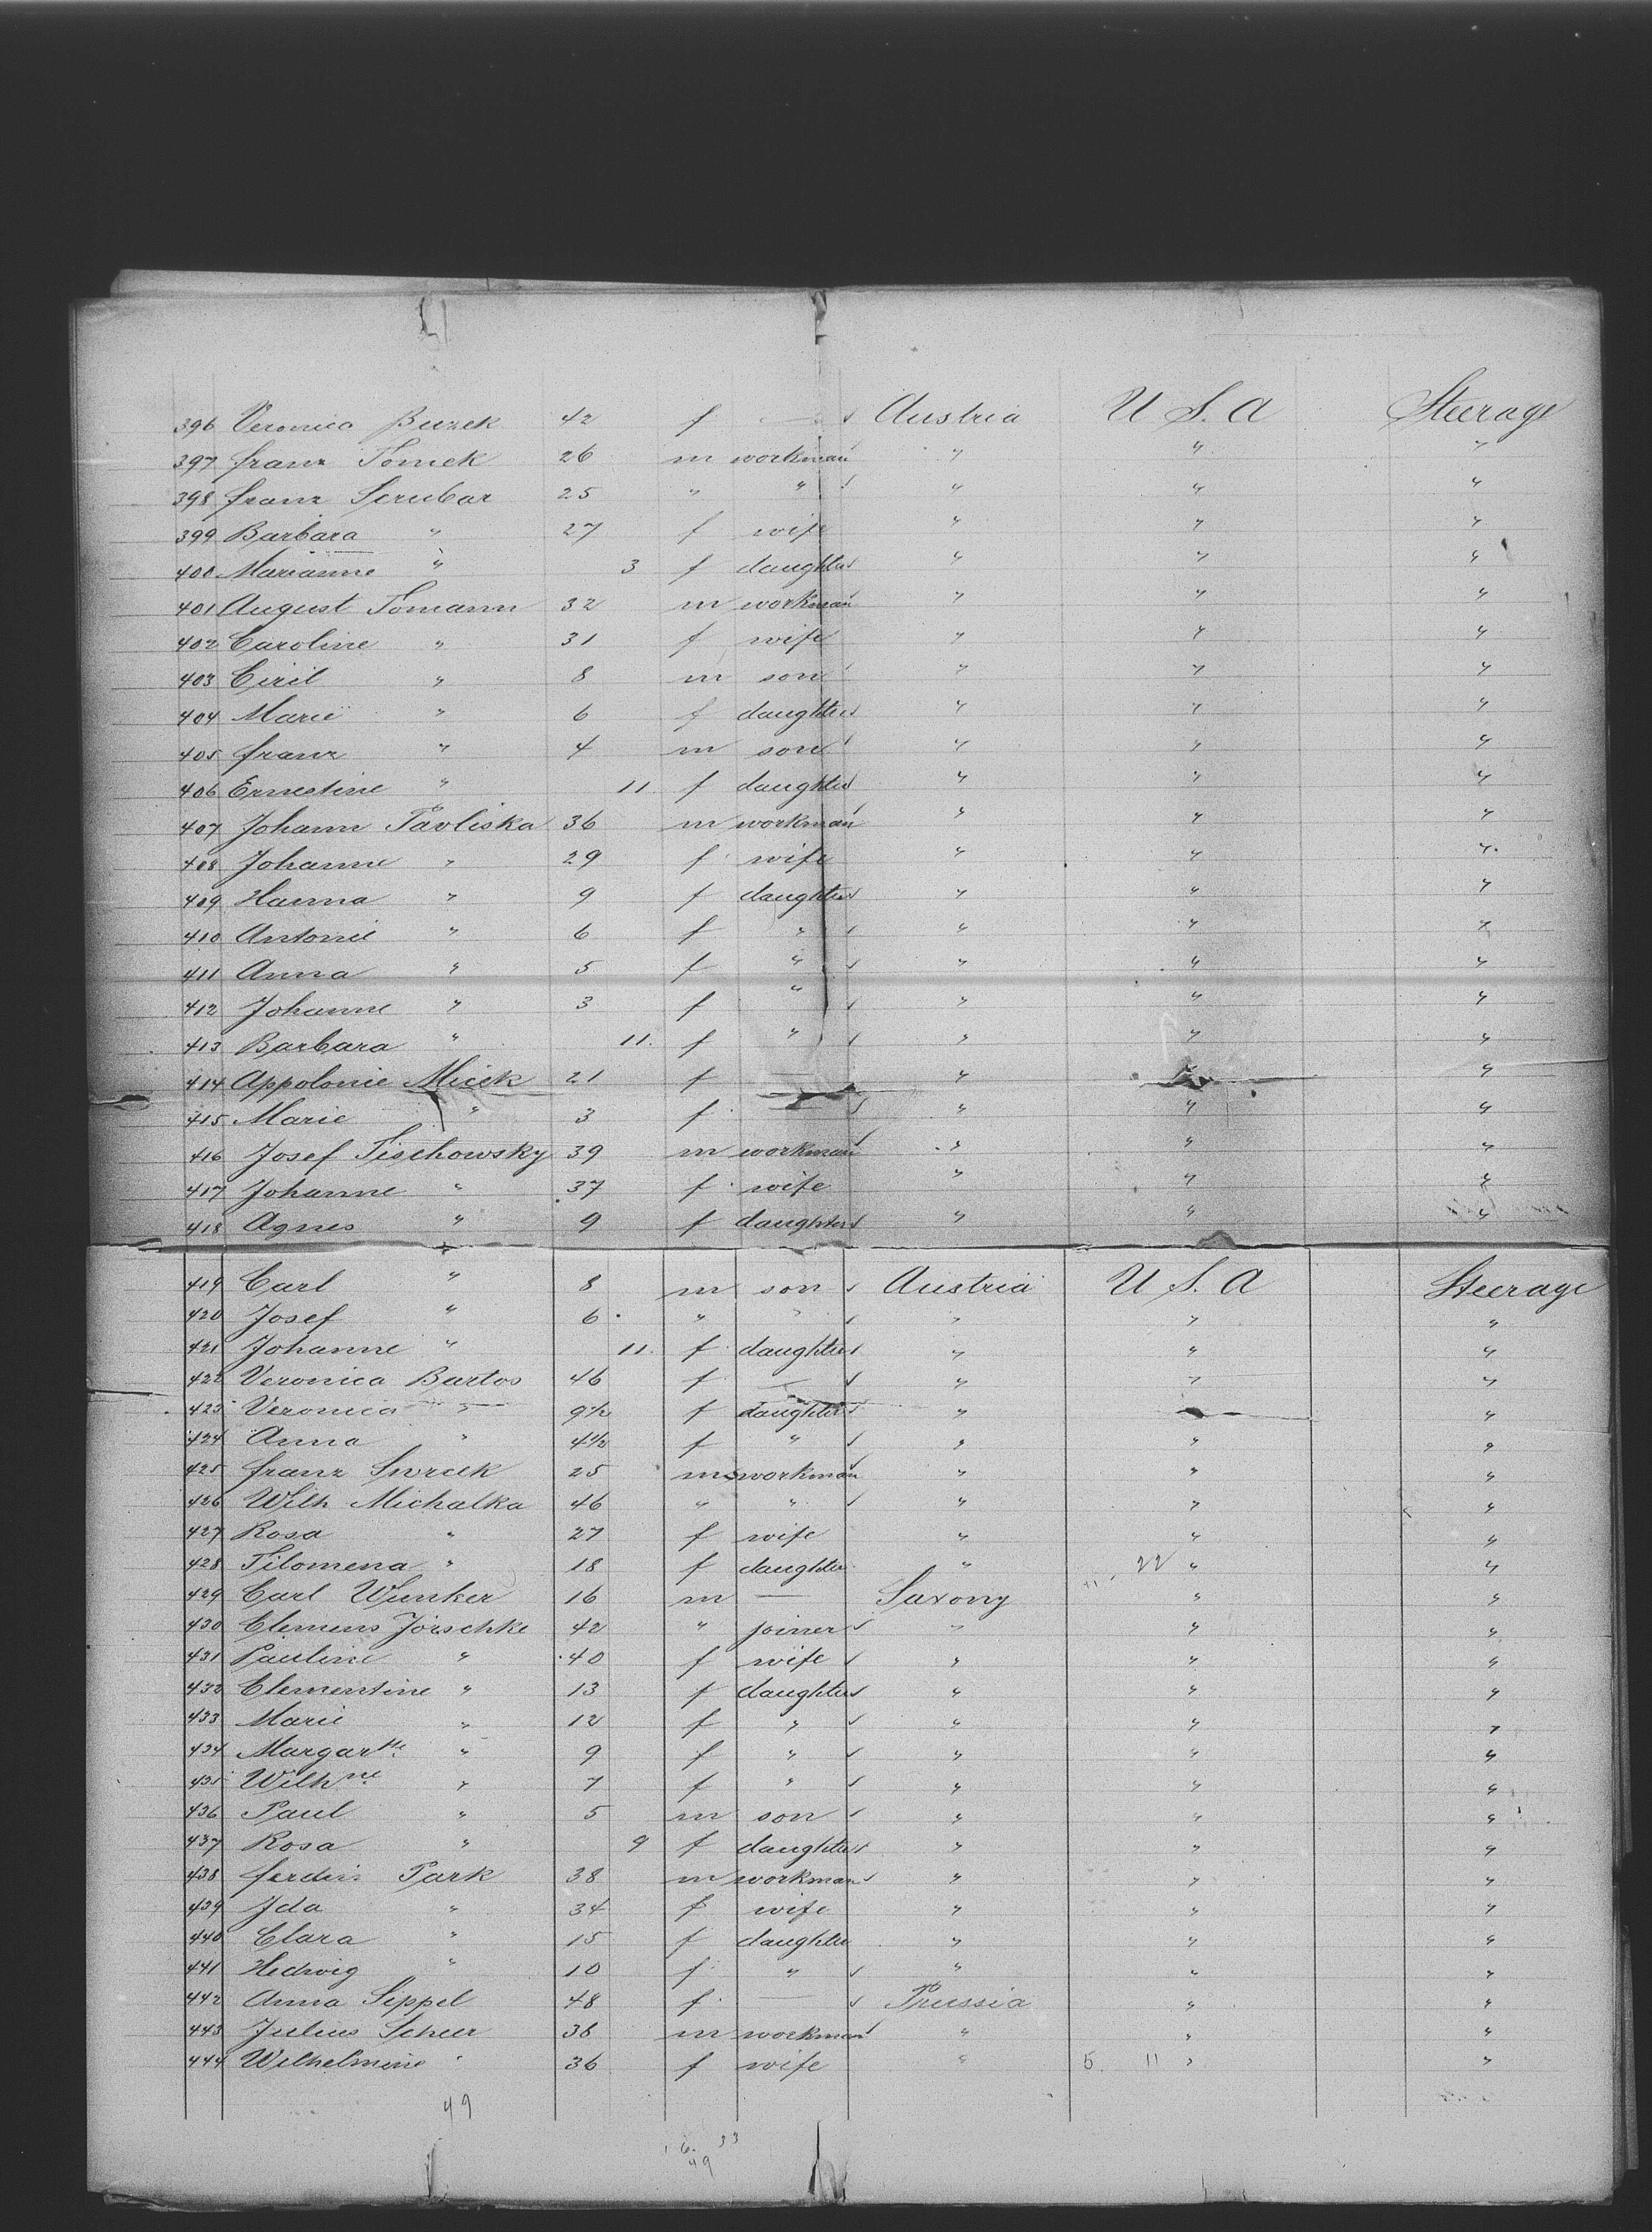 396 Veronica Buzek 42 f — Austria U S. A Steerage
397 franz Tomek 26 m workman " " "
398 franz Scrubar 25 " " " " "
399 Barbara " 27 f wife " " "
400 Marianne " 3 f daughter " " "
401 August Tomann 32 m workman " " "
402 Caroline " 31 f wife " " "
403 Ciril " 8 m son " " "
404 Marie " 6 f daughter " " "
405 franz " 4 m son " " "
406 Ernestine " 11 f daughter " " "
407 Johann Pavliska 36 m workman " " "
408 Johanne " 29 f wife " " "
409 Hanna " 9 f daughter " " "
410 Antonie " 6 f " " " "
411 Anna " 5 f " " " "
412 Johanne " 3 f " " " "
413 Barbara " 11. f " " " "
414 Appolonie Micek 21 f — " " "
415 Marie " 3 f — " " "
416 Josef Tischowsky 39 m workman " " "
417 Johanne " 37 f wife " " "
418 Agnes " 9 f daughter " " "
419 Carl " 8 m son Austria U S. A Steerage
420 Josef " 6 " " " " "
421 Johanne " 11. f daughter " " "
422 Veronica Bartos 46 f — " " "
423 Veronica " 9½ f daughter " " "
424 Anna " 4½ f " " " "
425 franz Swrcek 25 m workman " " "
426 Wilh Michalka 46 " " " " "
427 Rosa " 27 f wife " " "
428 Filomena " 18 f daughter " 22 " "
429 Carl Wunker 16 m — Saxony " "
430 Clemens Jörschke 42 " joiner " " "
431 Pauline " 40 f wife " " "
432 Clementine " 13 f daughter " " "
433 Marie " 12 f " " " "
434 Margarthe " 9 f " " " "
435 Wilhne " 7 f " " " "
436 Paul " 5 m son " " "
437 Rosa " 9 f daughter " " "
438 ferdin Park 38 m workman " " "
439 Ida " 34 f wife " " "
440 Clara " 15 f daughter " " "
441 Hedwig " 10 f " " " "
442 Anna Seppel 48 f — Prussia " "
443 Julius Scheer 38 m workman " " "
444 Wilhelmine " 36 f wife " 5. 11 " "
49
6. 33
49